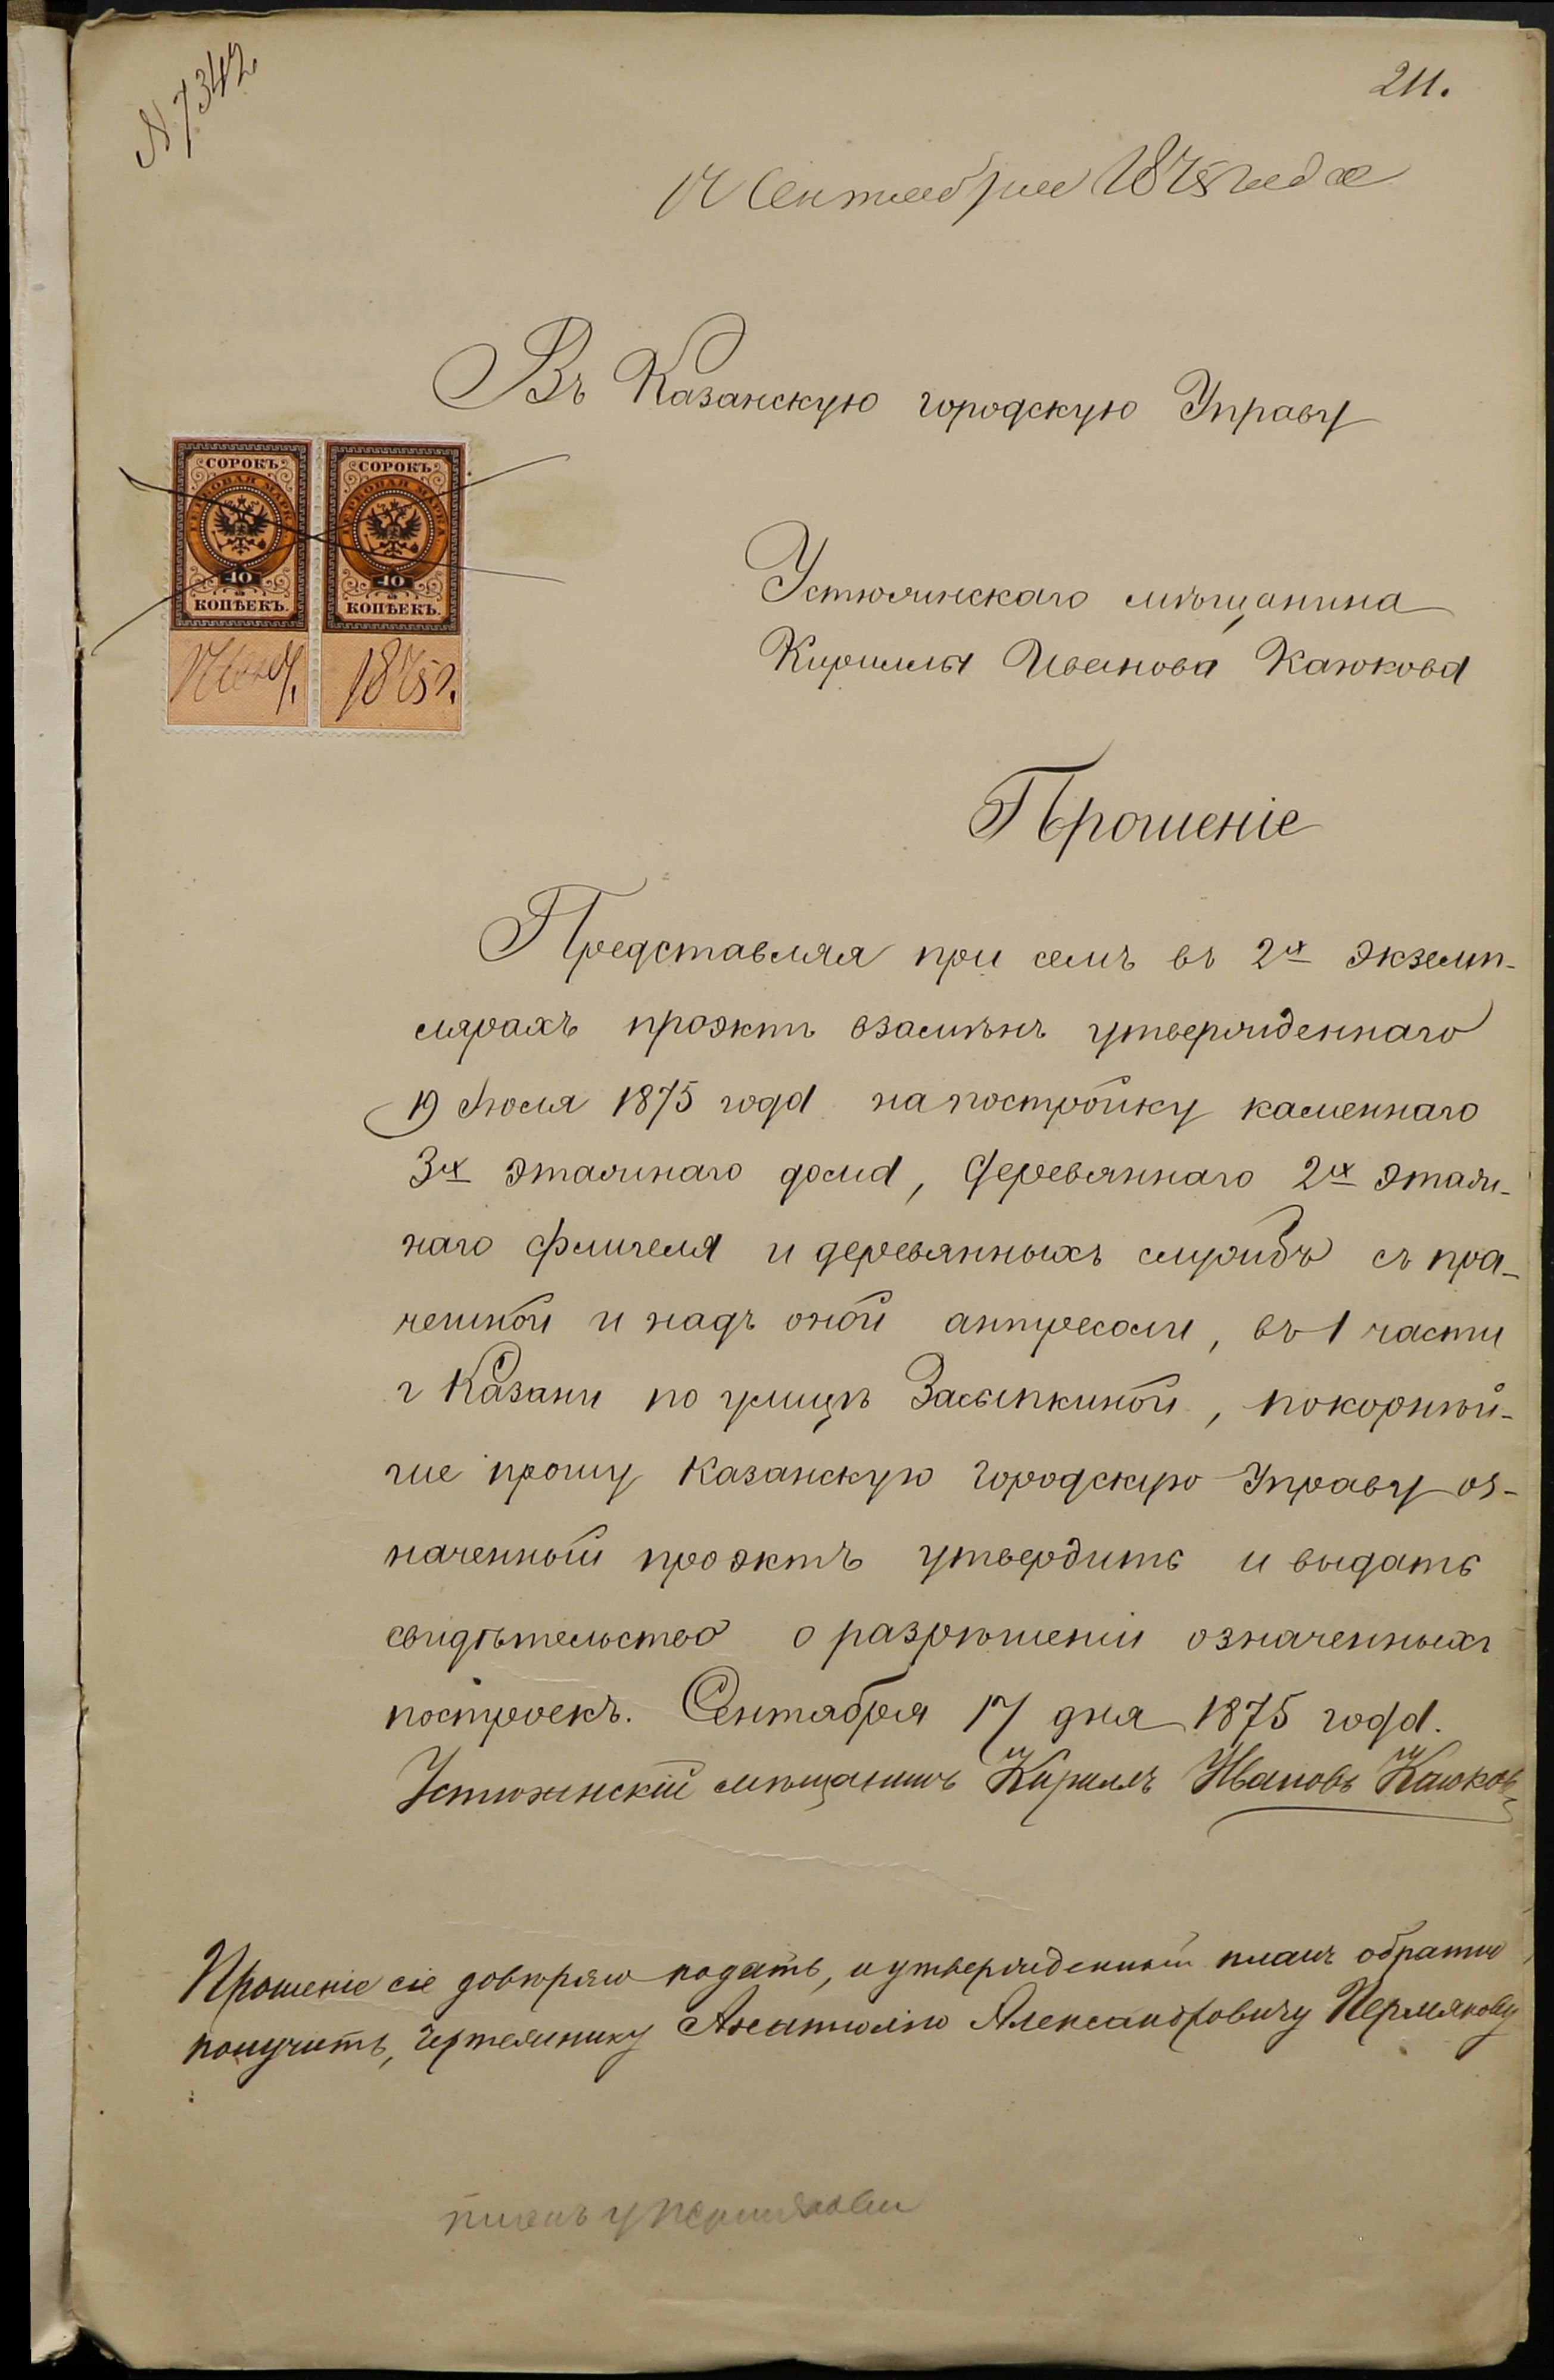 N 7342
211.
17 Сентября 1875 года
Въ Казанскую городскую Управу
СОРОКЪ СОРОКЪ
ГЕРБОВАЯ МАРКА ГЕРБОВАЯ МАРКА
40 40
КОПѢЕКЪ. КОПѢЕКЪ.
17 Сент. 1875 г.
Устюжнскаго мѣщанина
Кириллы Иванова Каюкова
Прошеніе
Представляя при семъ въ 2х экземп-
лярахъ проэктъ взамѣнъ утвержденнаго
19 Июля 1875 года на постройку каменнаго
3х этажнаго дома, деревяннаго 2х этаж-
наго флигеля и деревянныхъ службъ съ пра-
чешной и надъ оной антресоли, въ 1 части
г Казани по улицѣ Засыпкиной, покорнѣй-
ше прошу Казанскую Городскую Управу оз-
наченный проэктъ утвердить и выдать
свидѣтельство о разрѣшеніи означенныхъ
построекъ. Сентября 17 дня 1875 года.
Устюжнскій мѣщанинъ Кирилъ Ивановъ Каюковъ
Прошеніе сіе довѣряю подать, и утвержденный планъ обратно
получить, Чертежнику Анатолію Александровичу Пермякову
планъ у Пермякова